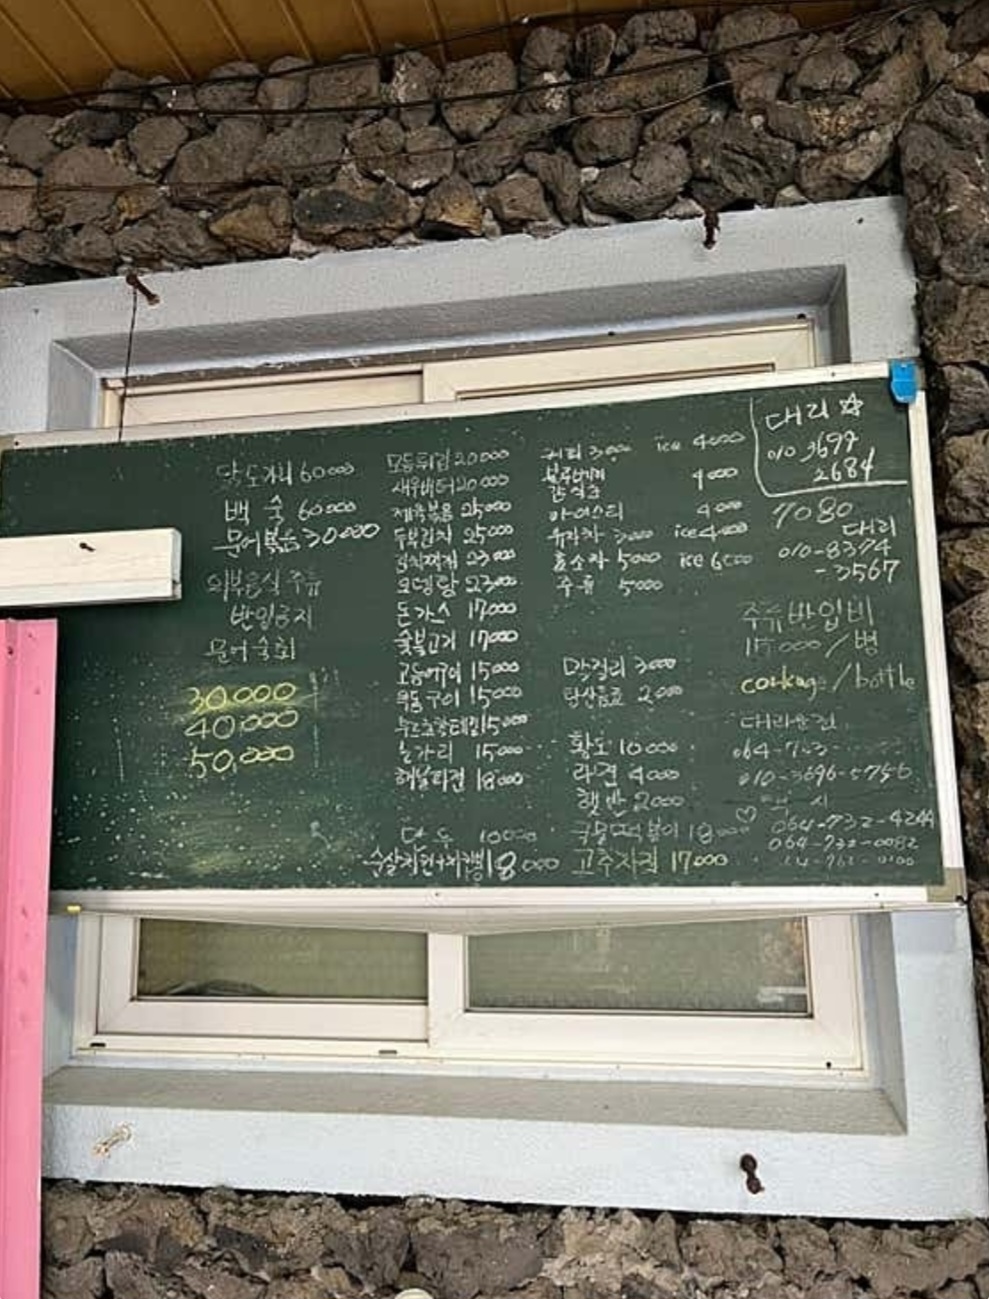 닭도리 60000
백숙 60000
문어볶음 30000
외부음식 주류
반입금지
문어숙회
30.000
40.000
50,000
모듬튀김 20000
새우버터 20000
제육볶음 25000
두부김치 25000
23000
오뎅탕 23000
돈가스 17000
숯불고기 17000
고등어구이 15000
구이 15000
15000
노가리 15000
해물파전 18000
만두 10000
순살치킨+ 18000
커피 3000 ice 4000
4000
아이스티 4000
유자차 3000 ice 4000
효소차 5000 ice 6000
주류 5000
막걸리 3000
탄산음료 2000
황도 10000
라면 4000
햇반 2000
국물떡볶이 18000
17000
대리 ☆
010 3697
2684
7080
대리
010-8374
-3567
주류반입비
15.000/병
corkage/bottle
대리운전
010-3696-5756
064-732-4244
064-732-0082